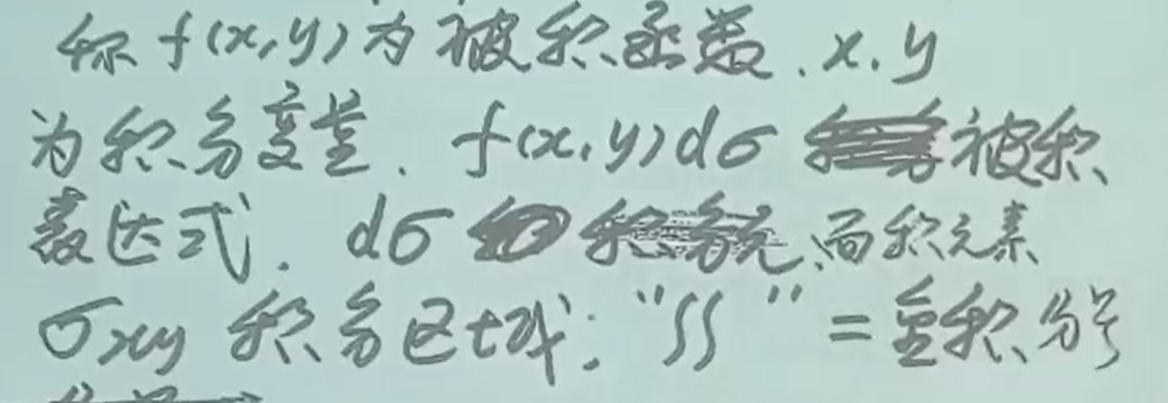 称 f(x,y) 为被积函数、x、y
为积分变量. f(x,y)dσ 被积
表达式. dσ 面积元素
σxy 积分区域; "∬" = 重积分号